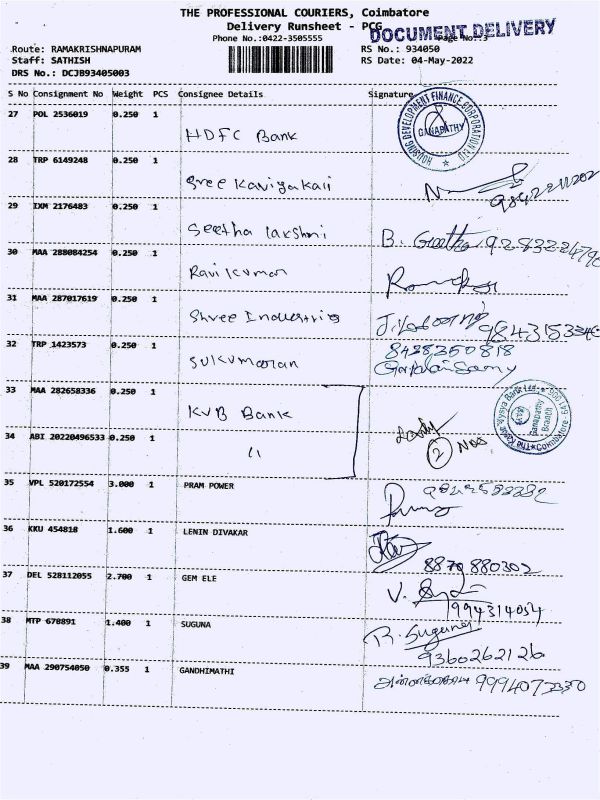 THE PROFESSIONAL COURIERS, Coimbatore
Delivery Runsheet - PCG
DOCUMENT DELIVERY
Phone No.:0422-3505555
Page No.:3
Route: RAMAKRISHNAPURAM
RS No.: 934050
Staff: SATHISH
RS Date: 04-May-2022
DRS No.: DCJB93405003
S No Consignment No Weight PCS Consignee Details Signature
27 POL 2536019 0.250 1
HDFC Bank
HOUSING DEVELOPMENT FINANCE CORPORATION LTD
GANAPATHY
28 TRP 6149248 0.250 1
Sree Kaviyakali
29 IXM 2176483 0.250 1
Seetha lakshmi
B. Geetha
30 MAA 288084254 0.250 1
Ravi kumar
31 MAA 287017619 0.250 1
Shree Industries
32 TRP 1423573 0.250 1
8428350818
Sukumaran
33 MAA 282658336 0.250 1
KVB Bank
Ganapathy
Branch
34 ABI 20220496533 0.250 1
"
2 Nos
35 VPL 520172554 3.000 1 PRAM POWER
36 KKU 454818 1.600 1 LENIN DIVAKAR
8870880302
37 DEL 528112055 2.700 1 GEM ELE
V.
1994314054
38 MTP 678891 1.400 1 SUGUNA
R. Suguna
9360262126
39 MAA 290754050 0.355 1 GANDHIMATHI